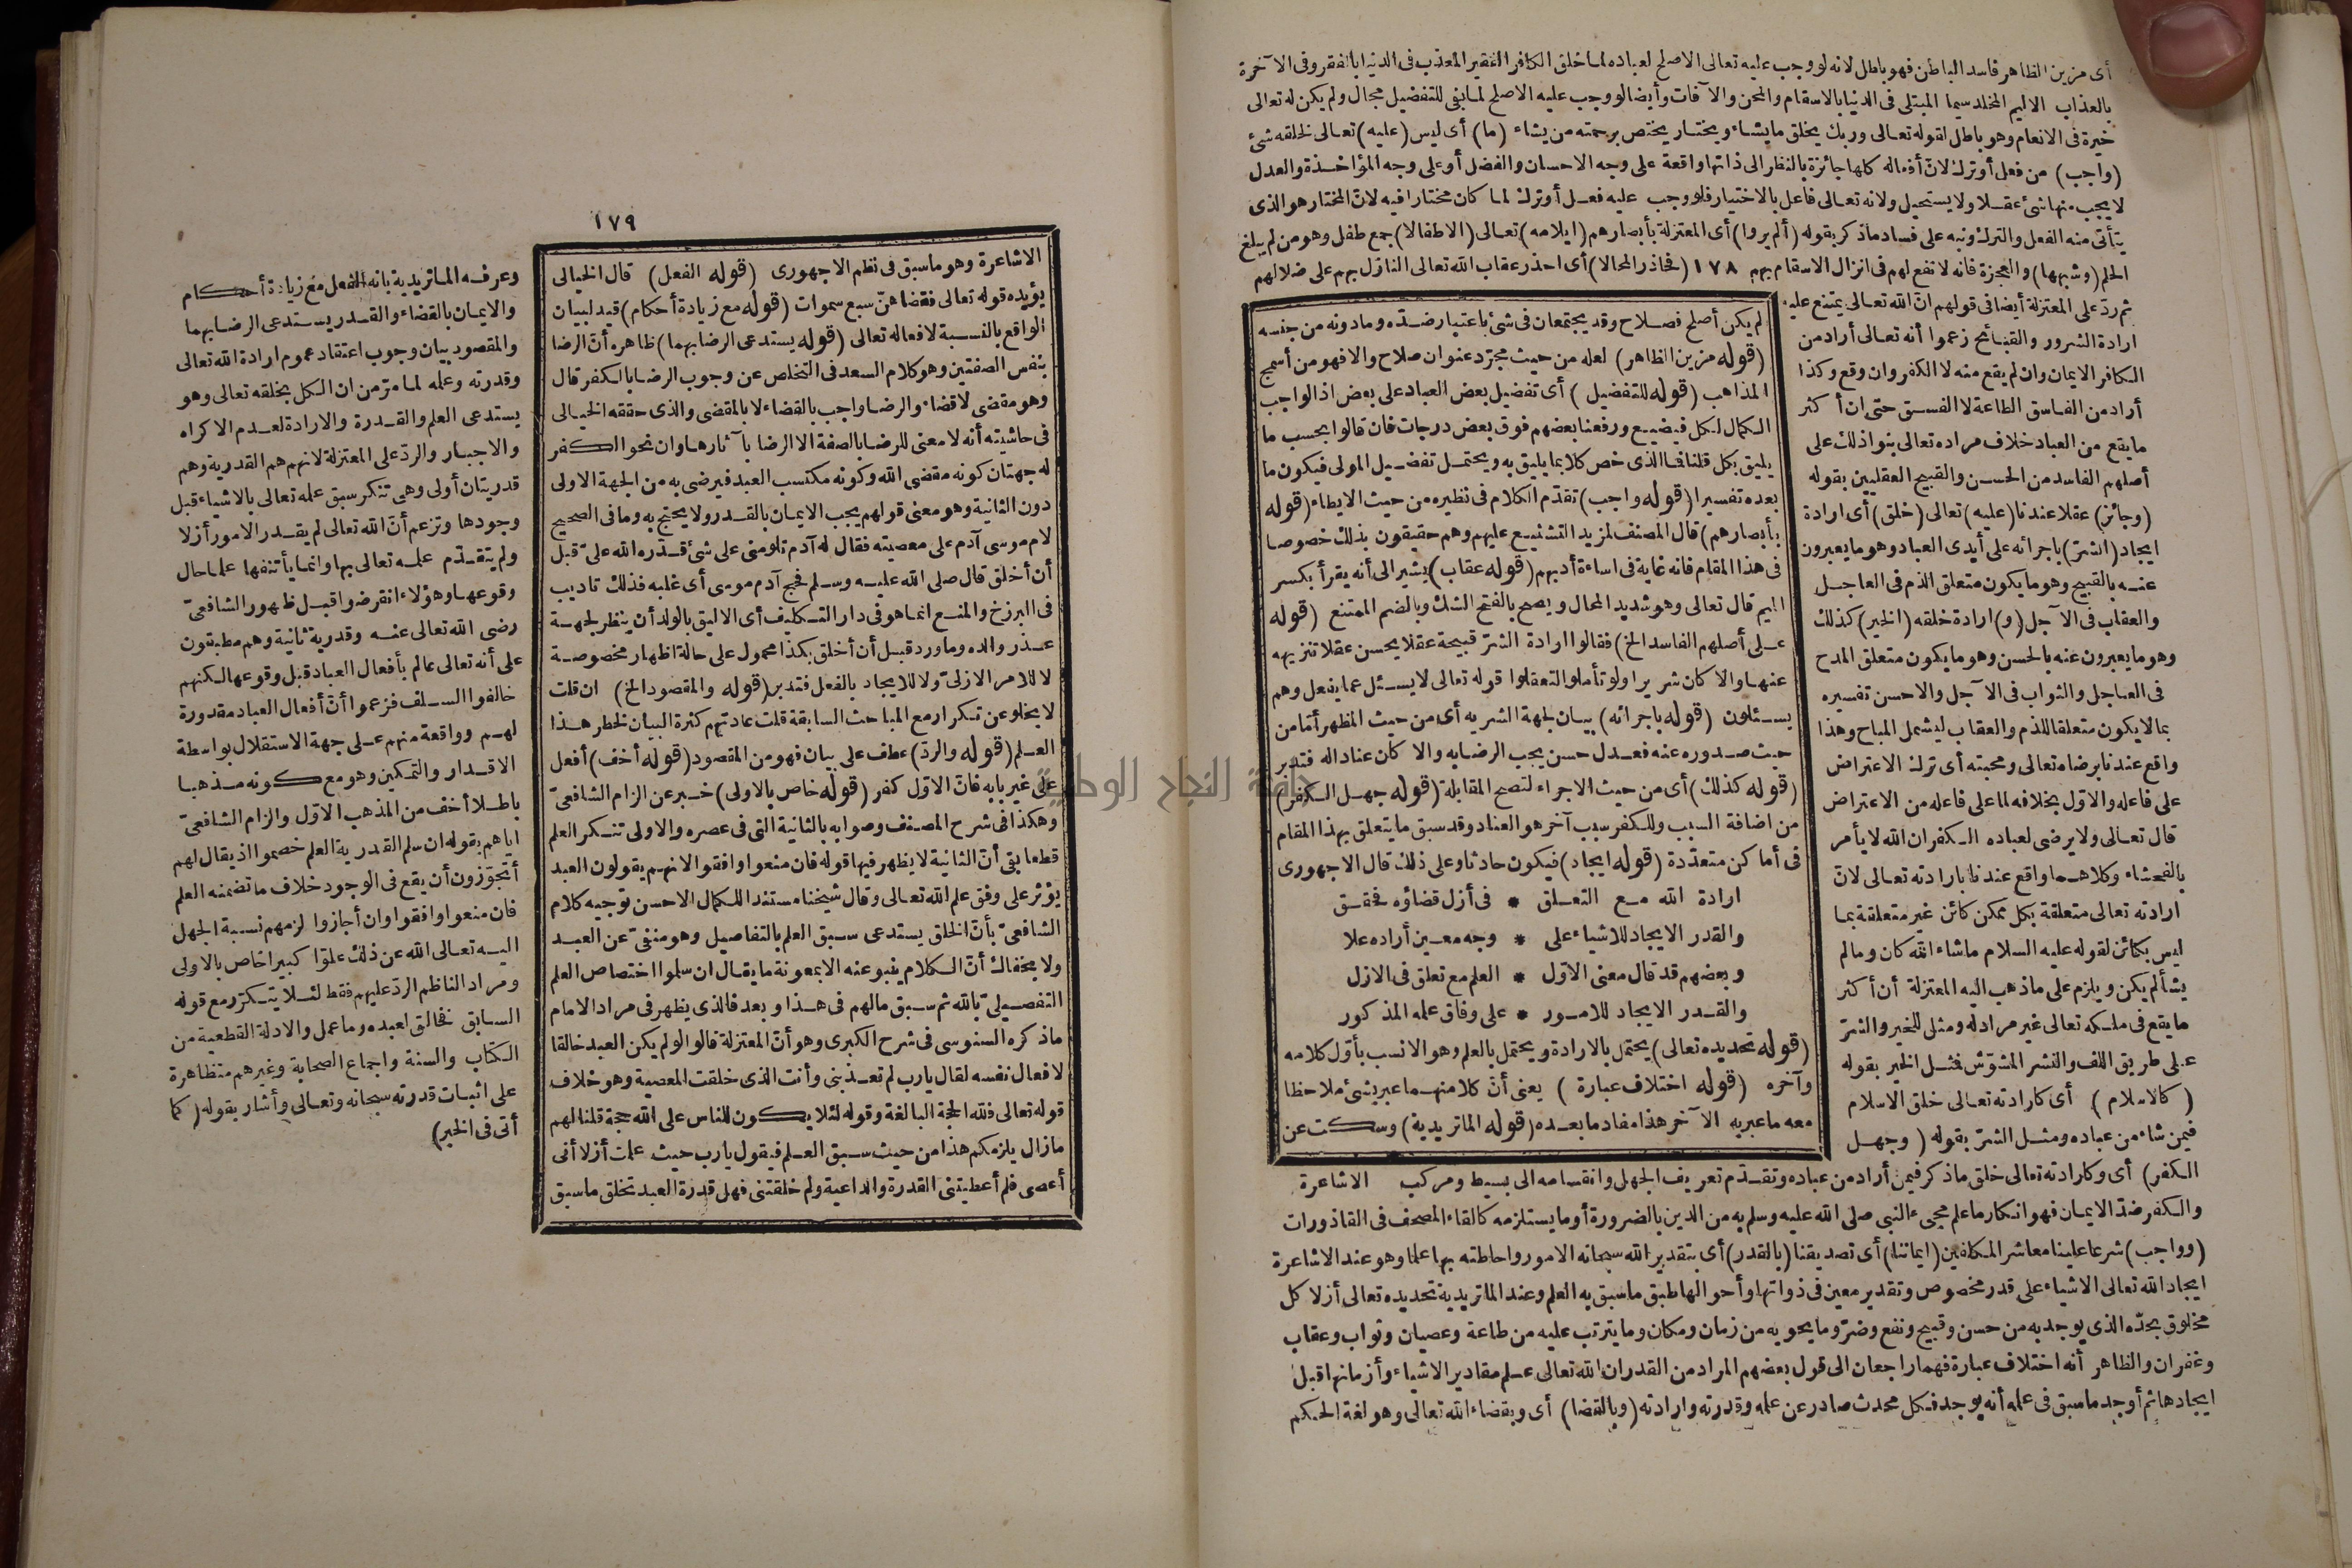 أى مزين الظاهر فاسد الباطن فهو باطل لانه لو وجب عليه تعالى الاصلح لعباده لما خلق الكافر الفقير المعذب فى الدنيا بالفقر وفى الآخرة
بالعذاب الاليم المخلد سيما المبتلى فى الدنيا بالاسقام والمحن والآفات وأيضا لو وجب عليه الاصلح لما بقى للتفضيل مجال ولم يكن له تعالى
خيرة فى الانعام وهو باطل لقوله تعالى وربك يخلق ما يشاء ويختار يختص برحمته من يشاء (ما) أى ليس (عليه) تعالى لخلقه شئ
(واجب) من فعل أو ترك لان أفعاله كلها جائزة بالنظر الى ذاتها واقعة على وجه الاحسان والفضل أو على وجه المؤاخذة والعدل
لا يجب منها شئ عقلا ولا يستحيل ولانه تعالى فاعل بالاختيار فلو وجب عليه فعل أو ترك لما كان مختارا فيه لان المختار هو الذى
يتأتى منه الفعل والترك ونبه على فساد ما ذكر بقوله (ألم يروا) أى المعتزلة بأبصارهم (ايلامه) تعالى (الاطفالا) جمع طفل وهو من لم يبلغ
الحلم (وشبهها) والعجزة فانه لا نفع لهم فى انزال الاسقام بهم ١٧٨ (فحاذر المحالا) أى احذر عقاب الله تعالى النازل بهم على ضلالهم
ثم ردّ على المعتزلة أيضا فى قولهم انّ الله تعالى يمتنع عليه
ارادة الشرور والقبائح زعموا أنه تعالى أراد من
الكافر الايمان وان لم يقع منه لا الكفر وان وقع وكذا
أراد من الفاسق الطاعة لا الفسق حتى ان أكثر
ما يقع من العباد خلاف مراده تعالى بنوا ذلك على
أصلهم الفاسد من الحسن والقبيح العقليين بقوله
(وجائز) عقلا عندنا (عليه) تعالى (خلق) أى ارادة
ايجاد (الشرّ) باجرائه على أيدى العباد وهو ما يعبرون
عنه بالقبيح وهو ما يكون متعلق الذم فى العاجل
والعقاب فى الآجل (و) ارادة خلقه (الخير) كذلك
وهو ما يعبرون عنه بالحسن وهو ما يكون متعلق المدح
فى العاجل والثواب فى الآجل والاحسن تفسيره
بما لا يكون متعلقا للذم والعقاب ليشمل المباح وهذا
واقع عندنا برضاه تعالى ومحبته أى ترك الاعتراض
على فاعله والاوّل بخلافه لما على فاعله من الاعتراض
قال تعالى ولا يرضى لعباده الكفر ان الله لا يأمر
بالفحشاء وكلاهما واقع عندنا بارادته تعالى لانّ
ارادته تعالى متعلقة بكل ممكن كائن غير متعلقة بما
ليس بكائن لقوله عليه السلام ما شاء الله كان وما لم
يشأ لم يكن ويلزم على ما ذهب اليه المعتزلة أن أكثر
ما يقع فى ملكه تعالى غير مراد له ومثل للخير والشرّ
على طريق اللف والنشر المشوّش فمثل الخير بقوله
(كالاسلام) أى كارادته تعالى خلق الاسلام
فيمن شاء من عباده ومثل الشرّ بقوله (وجهل
الكفر) أى وكارادته تعالى خلق ما ذكر فيمن أراد من عباده وتقدّم تعريف الجهل وانقسامه الى بسيط ومركب
والكفر ضدّ الايمان فهو انكار ما علم مجىء النبى صلى الله عليه وسلم به من الدين بالضرورة أو ما يستلزمه كالقاء المصحف فى القاذورات
(وواجب) شرعا علينا معاشر المكلفين (ايماننا) أى تصديقنا (بالقدر) أى بتقدير الله سبحانه الامور واحاطته بها علما وهو عند الاشاعرة
ايجاد الله تعالى الاشياء على قدر مخصوص وتقدير معين فى ذواتها وأحوالها طبق ما سبق به العلم وعند الماتريدية تحديده تعالى أزلا كل
مخلوق بحدّه الذى يوجد به من حسن وقبيح ونفع وضرّ وما يحويه من زمان ومكان وما يترتب عليه من طاعة وعصيان وثواب وعقاب
وغفران والظاهر أنه اختلاف عبارة فهما راجعان الى قول بعضهم المراد من القدر ان الله تعالى علم مقادير الاشياء وأزمانها قبل
ايجادها ثم أوجد ما سبق فى علمه أنه يوجد فكل محدث صادر عن علمه وقدرته وارادته (وبالقضا) أى وبقضاء الله تعالى وهو لغة الحكم
لم يكن أصلح فصلاح وقد يجتمعان فى شئ باعتبار ضدّه وما دونه من جنسه
(قوله مزين الظاهر) لعله من حيث مجرّد عنوان صلاح والا فهو من أسمج
المذاهب (قوله للتفضيل) أى تفضيل بعض العباد على بعض اذ الواجب
الكمال لكل فيضيع ورفعنا بعضهم فوق بعض درجات فان قالوا بحسب ما
يليق بكل قلنا فما الذى خص كلا بما يليق به ويحتمل تفضيل المولى فيكون ما
بعده تفسيرا (قوله واجب) تقدّم الكلام فى نظيره من حيث الايطاء (قوله
بأبصارهم) قال المصنف لمزيد التشنيع عليهم وهم حقيقون بذلك خصوصا
فى هذا المقام فانه غاية فى اساءة أدبهم (قوله عقاب) يشير الى أنه يقرأ بكسر
الميم قال تعالى وهو شديد المحال ويصح بالفتح الشك وبالضم الممتنع (قوله
على أصلهم الفاسد الخ) فقالوا ارادة الشرّ قبيحة عقلا يحسن عقلا تنزيهه
عنها والا كان شريرا ولو تأملوا لتعقلوا قوله تعالى لا يسئل عما يفعل وهم
يسئلون (قوله باجرائه) بيان لجهة الشرية أى من حيث المظهر أمّا من
حيث صدوره عنه فعدل حسن يجب الرضا به والا كان عنادا له فتدبر
(قوله كذلك) أى من حيث الاجراء لتصح المقابلة (قوله جهل الكفر)
من اضافة السبب وللكفر سبب آخر هو العناد وقد سبق ما يتعلق بهذا المقام
فى أماكن متعدّدة (قوله ايجاد) فيكون حادثا وعلى ذلك قال الاجهورى
ارادة الله مع التعلق * فى أزل قضاؤه فحقق
والقدر الايجاد للاشياء على * وجه معين أراده علا
وبعضهم قد قال معنى الاوّل * العلم مع تعلق فى الازل
والقدر الايجاد للامور * على وفاق علمه المذكور
(قوله تحديده تعالى) يحتمل بالارادة ويحتمل بالعلم وهو الانسب بأوّل كلامه
وآخره (قوله اختلاف عبارة) يعنى أنّ كلا منهما عبر بشئ ملاحظا
معه ما عبر به الآخر هذا مفاد ما بعده (قوله الماتريدية) وسكت عن
الاشاعرة
١٧٩
الاشاعرة وهو ما سبق فى نظم الاجهورى (قوله الفعل) قال الخيالى
يؤيده قوله تعالى فقضاهنّ سبع سموات (قوله مع زيادة أحكام) قيد لبيان
الواقع بالنسبة لافعاله تعالى (قوله يستدعى الرضا بهما) ظاهره أنّ الرضا
بنفس الصفتين وهو كلام السعد فى التخلص عن وجوب الرضا بالكفر قال
وهو مقضى لا قضاء والرضا واجب بالقضاء لا بالمقضى والذى حققه الخيالى
فى حاشيته أنه لا معنى للرضا بالصفة الا الرضا بآثارها وان نحو الكفر
له جهتان كونه مقضى الله وكونه مكتسب العبد فيرضى به من الجهة الاولى
دون الثانية وهو معنى قولهم يجب الايمان بالقدر ولا يحتج به وما فى الصحيح
لام موسى آدم على معصيته فقال له آدم تلومنى على شئ قدّره الله علىّ قبل
أن أخلق قال صلى الله عليه وسلم فحج آدم موسى أى غلبه فذلك تاديب
فى البرزخ والمنع انما هو فى دار التكليف أى الاليق بالولد أن ينظر لجهة
عذر والده وما ورد قبل أن أخلق بكذا محمول على حالة اظهار مخصوصة
لا للامر الازلىّ ولا للايجاد بالفعل فتدبر (قوله والمقصود الخ) ان قلت
لا يخلو عن تكرار مع المباحث السابقة قلت عادتهم كثرة البيان لخطر هذا
العلم (قوله والردّ) عطف على بيان فهو من المقصود (قوله أخف) أفعل
على غير بابه فانّ الاوّل كفر (قوله خاص بالاولى) خبر عن الزام الشافعىّ
وهكذا فى شرح المصنف وصوابه بالثانية التى فى عصره والاولى تنكر العلم
قطعا بقى أنّ الثانية لا يظهر فيها قوله فان منعوا وافقوا لانهم يقولون العبد
يؤثر على وفق علم الله تعالى وقال شيخنا مستندا للكمال الاحسن توجيه كلام
الشافعىّ بأنّ الخلق يستدعى سبق العلم بالتفاصيل وهو منفىّ عن العبد
ولا يخفاك أنّ الكلام ينبو عنه الا بمعونة ما يقال ان سلموا اختصاص العلم
التفصيلىّ بالله ثم سبق مالهم فى هذا وبعد فالذى يظهر فى مراد الامام
ما ذكره السنوسى فى شرح الكبرى وهو أنّ المعتزلة قالوا لو لم يكن العبد خالقا
لافعال نفسه لقال يا رب لم تعذبنى وأنت الذى خلقت المعصية وهو خلاف
قوله تعالى فلله الحجة البالغة وقوله لئلا يكون للناس على الله حجة قلنا لهم
ما زال يلزمكم هذا من حيث سبق العلم فيقول يا رب حيث علمت أزلا أنى
أعصى فلم أعطيتنى القدرة والداعية ولم خلقتنى فهل قدرة العبد تخلق ما سبق
وعرفه الماتريدية بانه الفعل مع زيادة أحكام
والايمان بالقضاء والقدر يستدعى الرضا بهما
والمقصود بيان وجوب اعتقاد عموم ارادة الله تعالى
وقدرته وعلمه لما مرّ من ان الكل بخلقه تعالى وهو
يستدعى العلم والقدرة والارادة لعدم الاكراه
والاجبار والردّ على المعتزلة لانهم هم القدرية وهم
قدريتان أولى وهى تنكر سبق علمه تعالى بالاشياء قبل
وجودها وتزعم أنّ الله تعالى لم يقدر الامور أزلا
ولم يتقدّم علمه تعالى بها وانما يأتنفها علما حال
وقوعها وهؤلاء انقرضوا قبل ظهور الشافعىّ
رضى الله تعالى عنه وقدرية ثانية وهم مطبقون
على أنه تعالى عالم بأفعال العباد قبل وقوعها لكنهم
خالفوا السلف فزعموا أنّ أفعال العباد مقدورة
لهم وواقعة منهم على جهة الاستقلال بواسطة
الاقدار والتمكين وهو مع كونه مذهبا
باطلا أخف من المذهب الاوّل والزام الشافعىّ
اياهم بقوله ان سلم القدرية العلم خصموا اذ يقال لهم
أتجوّزون أن يقع فى الوجود خلاف ما تضمنه العلم
فان منعوا وافقوا وان أجازوا لزمهم نسبة الجهل
اليه تعالى الله عن ذلك علوّا كبيرا خاص بالاولى
ومراد الناظم الردّ عليهم فقط لئلا يتكرّر مع قوله
السابق فخالق لعبده وما عمل والادلة القطعية من
الكتاب والسنة واجماع الصحابة وغيرهم متظاهرة
على اثبات قدرته سبحانه وتعالى وأشار بقوله (كما
أتى فى الخبر)
النجاح الوطنية